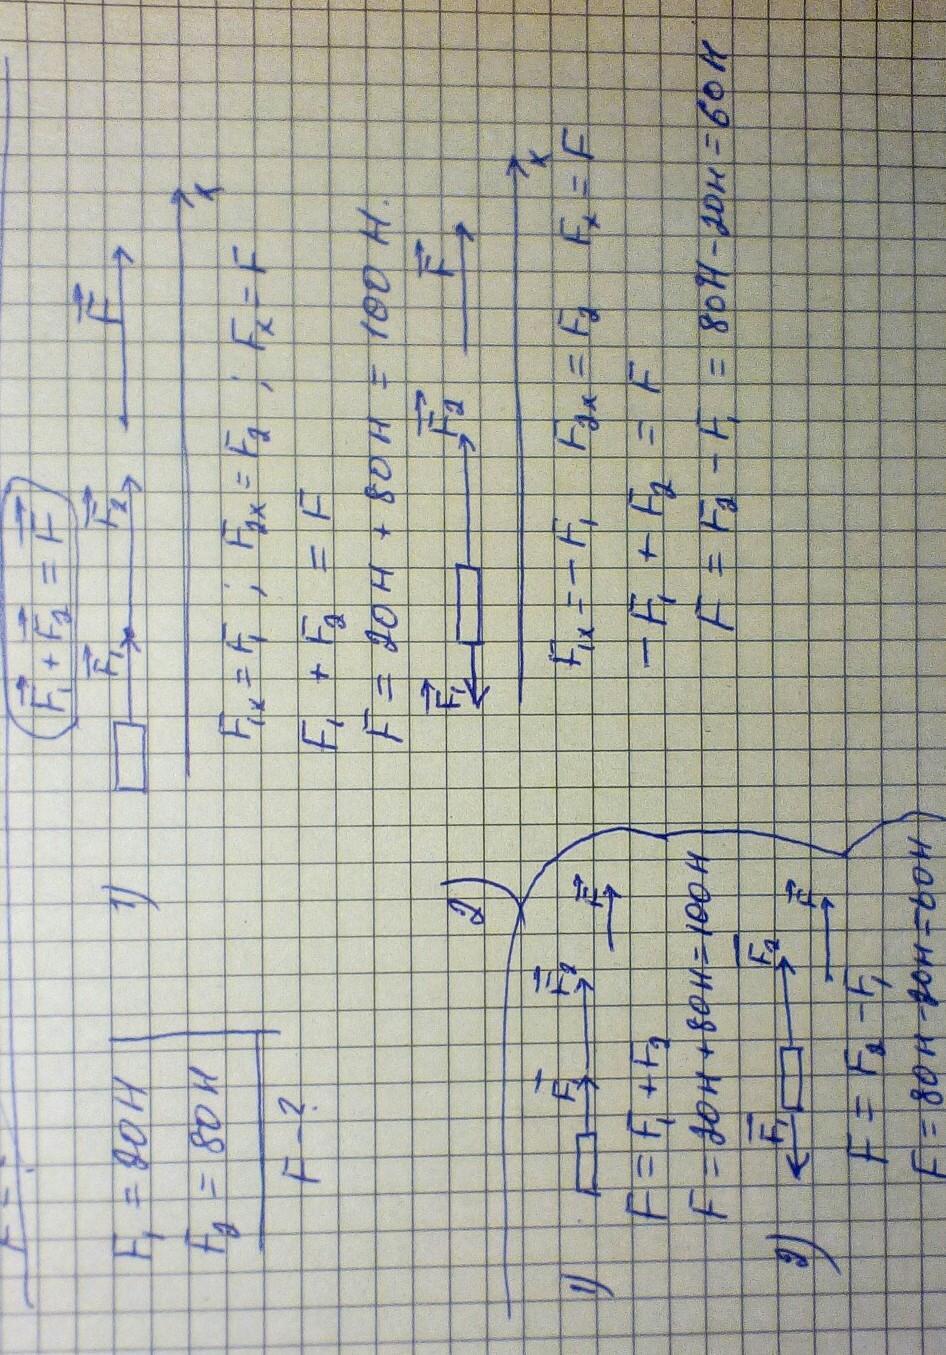 F₁ = 20Н
F₂ = 80Н
F - ?
F⃗₁ + F⃗₂ = F⃗
1)
F⃗₁ F⃗₂ F⃗
x
F₁ₓ = F₁ ; F₂ₓ = F₂ ; Fₓ = F
F₁ + F₂ = F
F = 20Н + 80Н = 100Н.
2)
F⃗₁ F⃗₂ F⃗
x
F₁ₓ = -F₁ F₂ₓ = F₂ Fₓ = F
-F₁ + F₂ = F
F = F₂ - F₁ = 80Н - 20Н = 60Н
1)
F⃗₁ F⃗₂ F⃗
F = F₁ + F₂
F = 20Н + 80Н = 100Н
2)
F⃗₁ F⃗₂ F⃗
F = F₂ - F₁
F = 80Н - 20Н = 60Н